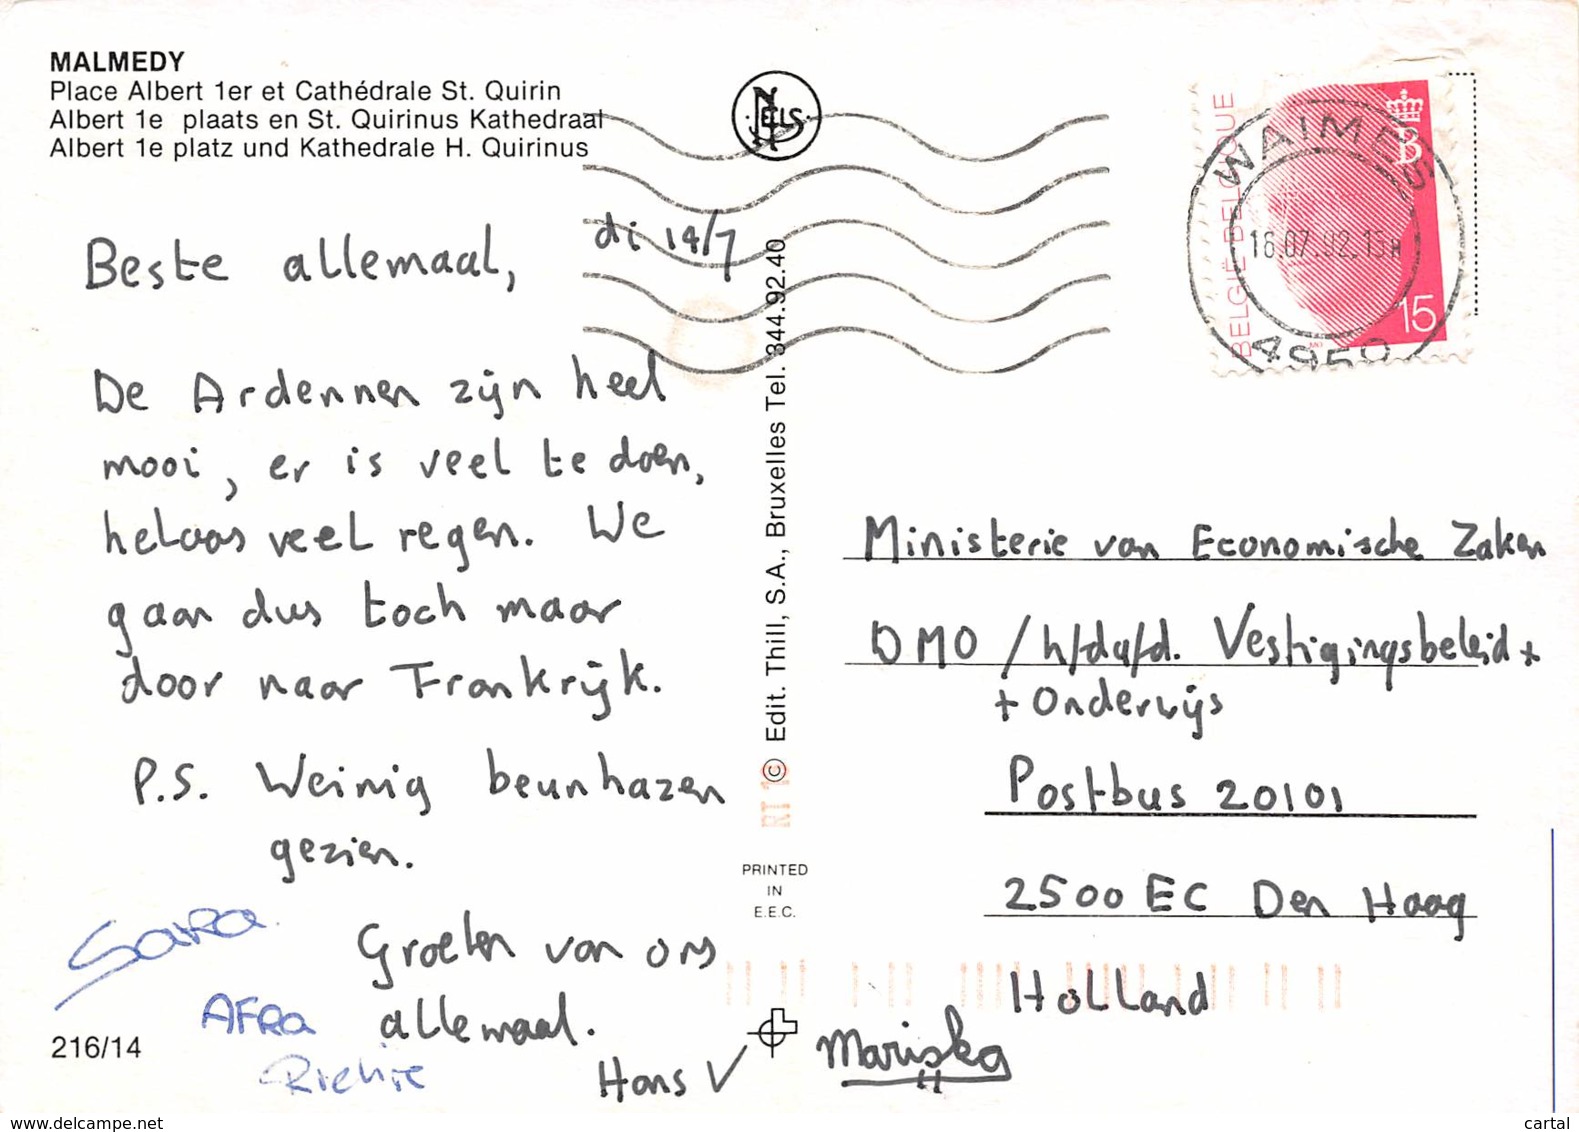 MALMEDY
Place Albert 1er et Cathédrale St. Quirin
Albert 1e plaats en St. Quirinus Kathedraal
Albert 1e platz und Kathedrale H. Quirinus
NELS
BELGIË-BELGIQUE
B
15
WAIMES
16.07.92.15H
4950
di 14/7
Beste allemaal,
De Ardennen zijn heel
mooi, er is veel te doen,
helaas veel regen. We
gaan dus toch maar
door naar Frankrijk.
P.S. Weinig beunhazen
gezien.
Groeten van ons
allemaal.
Sara
AFRA
Hans V
Mariska
216/14
© Edit. Thill, S.A., Bruxelles Tel. 344.92.40
PRINTED
IN
E.E.C.
Ministerie van Economische Zaken
DMO / h/da/d. Vestigingsbeleid +
+ Onderwijs
Postbus 20101
2500 EC Den Haag
Holland
www.delcampe.net
cartal